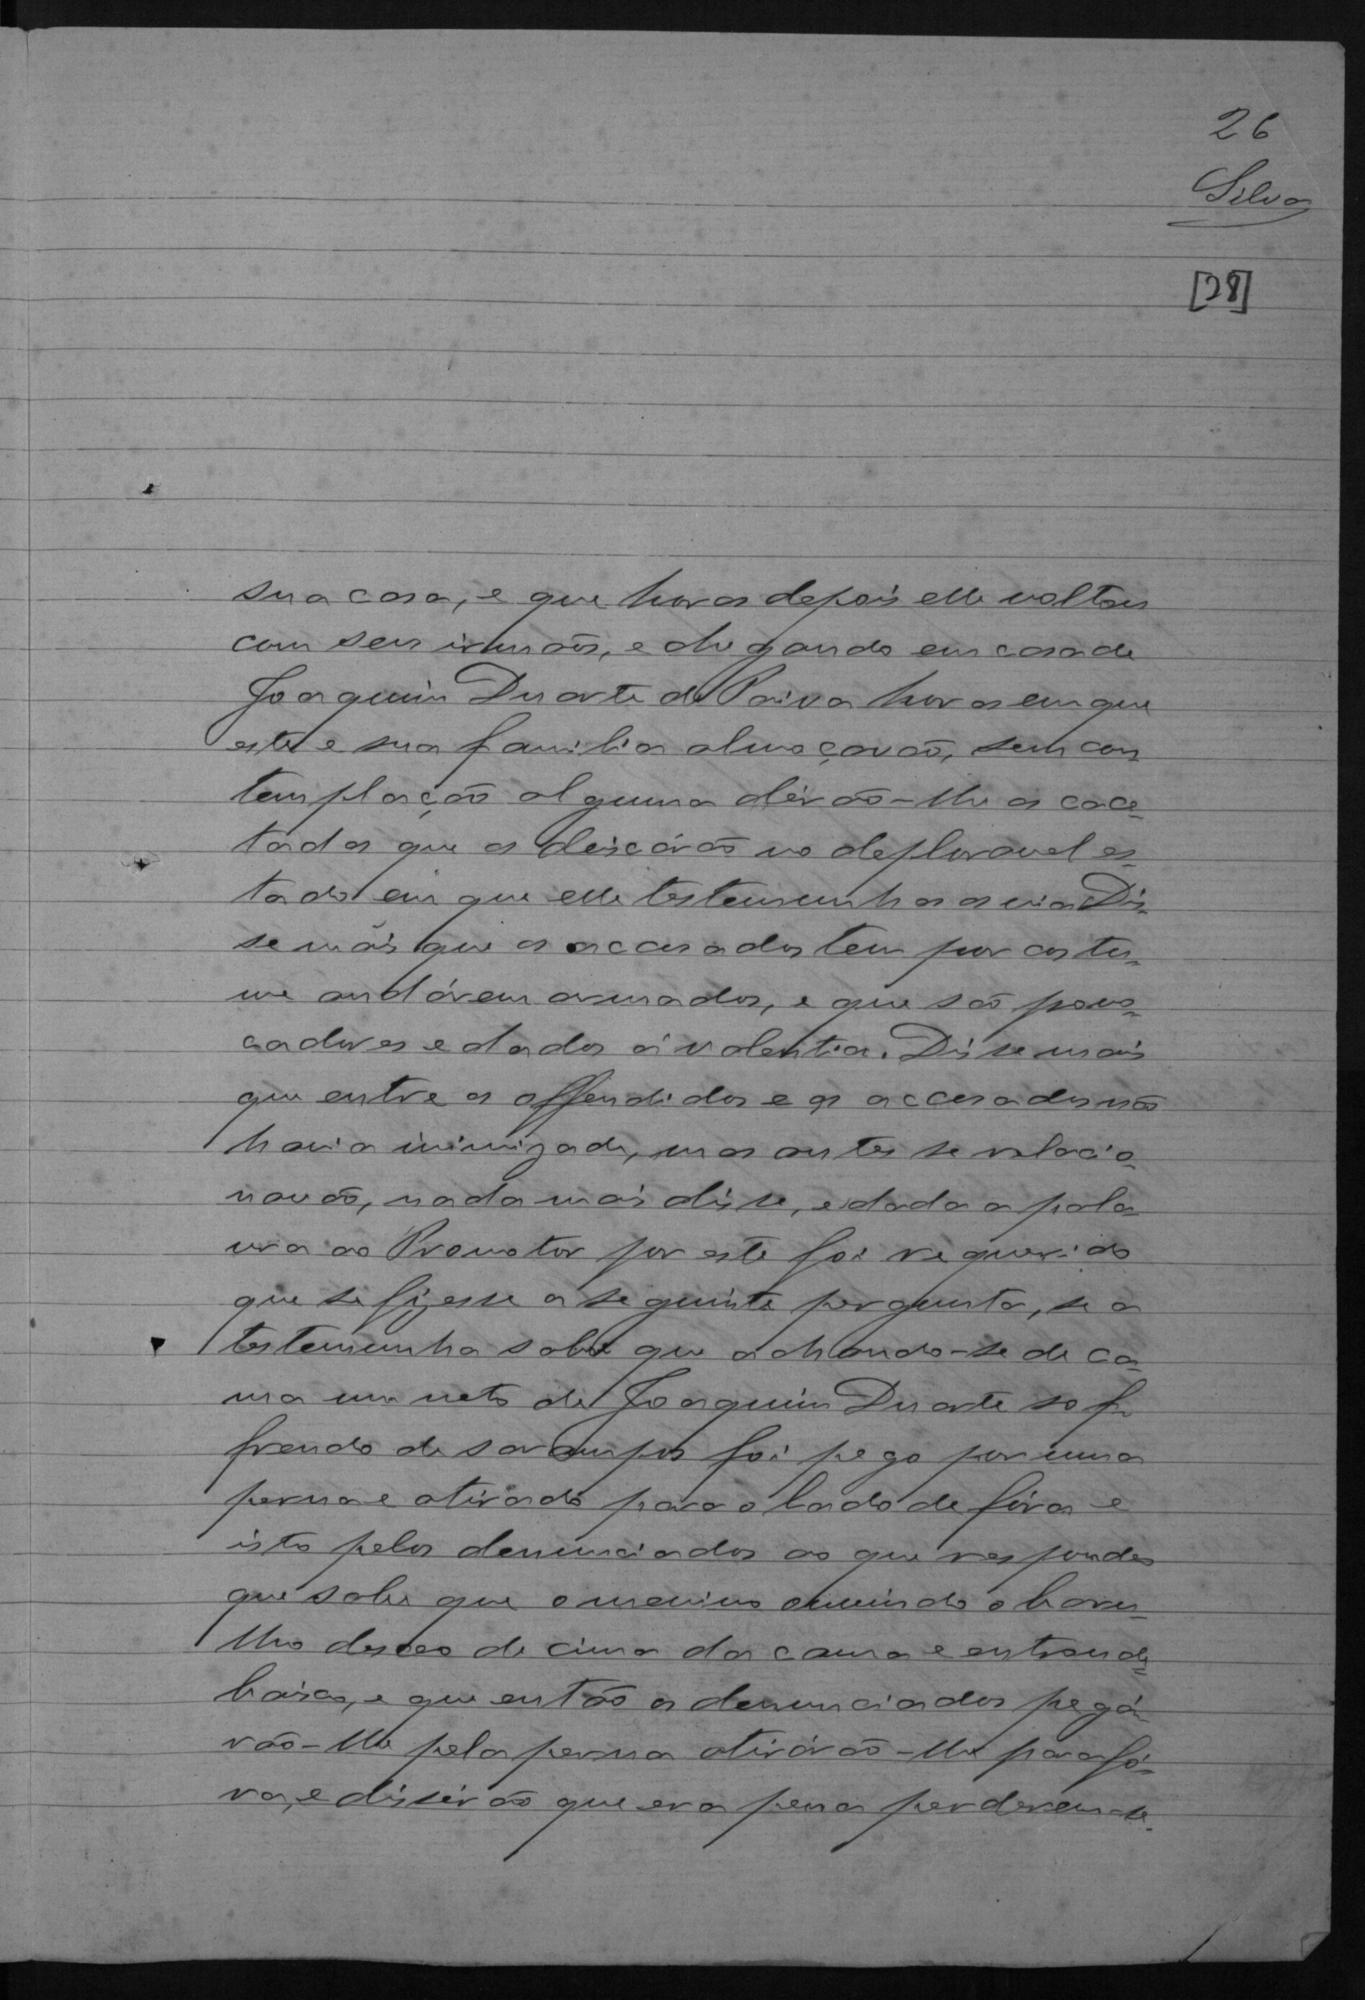 26
Silva
[28]
sua casa, e que horas depois elle voltou
com seus irmãos, e chegando em casa de
Joaquim Duarte de Paiva horas em que
este e sua familia almoçavão, sem con
templação alguma dérão-lhe as cace-
tadas que os deixárão no deploravel es-
tado em que elle testemunha os via Dis-
se máis que os accusados tem por costu-
me andárem armados, e que são provo-
cadores e dados á valentia. Disse mais
que entre os offendidos e os accusados não
havia inimizade, mas antes se relacio-
navão, nada mais disse, e dada a pala-
vra ao Promotor por este foi requerido
que se fizesse a seguinte pergunta, se a
testemunha sabe que achando-se de ca-
ma um neto de Joaquim Duarte sof-
frendo de sarampos foi pego por uma
perna e atirado para o lado de fóra e
isto pelos denunciados ao que respondeo
que sabe que o menino ouvindo o baru-
lho desceo de cima da cama e entrou de-
baixo, e que então os denunciados pegá-
rão-lhe pela perna atirárão-lhe para fó-
ra, e dissérão que era pena perderem-se